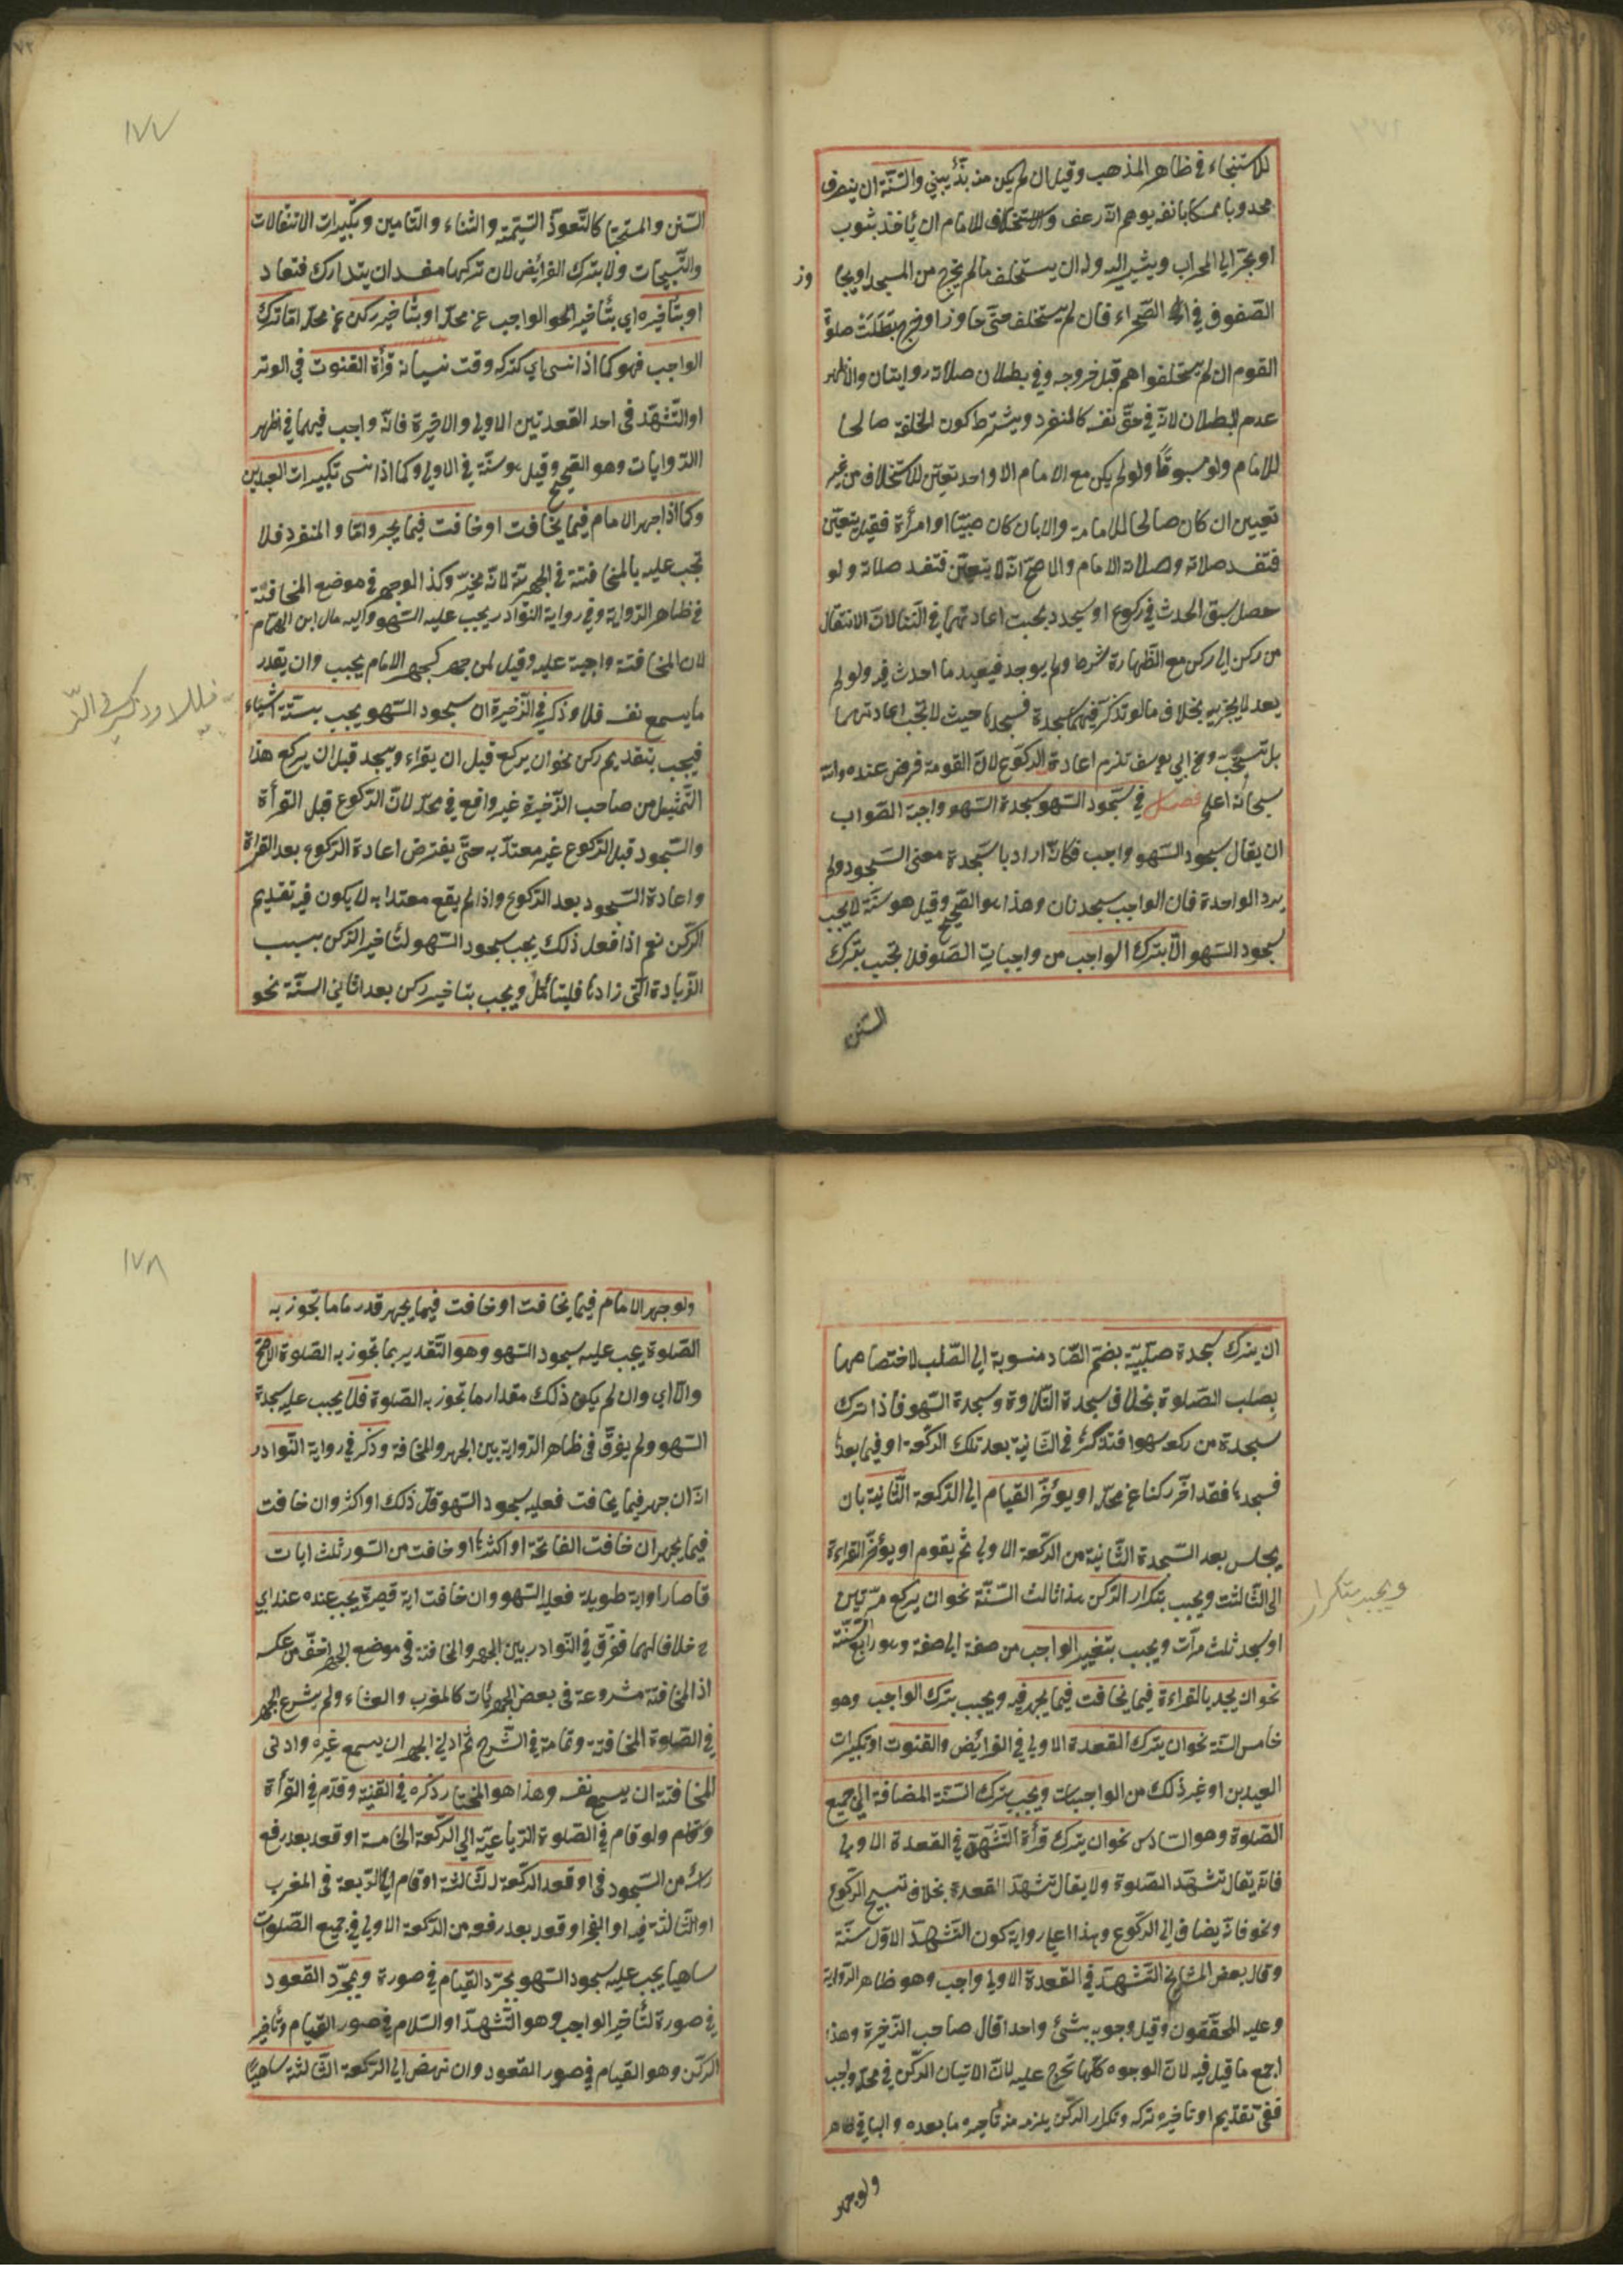 للاستنجاء في ظاهر المذهب وقيل ان لم يكن منه بدّ يبني والسّنّة ان ينصرف
محدوبا ممسكا بانفه يوهم انّه رعف والاستخلاف للامام ان يأخذ بثوب
او يجرّ الى المحراب ويشير اليه وله ان يستخلف ما لم يخرج من المسجد او يجا
وز
الصّفوف في الصّحراء فان لم يستخلف حتّى جاوز او خرج بَطَلَتْ صلوة
القوم ان لم يستخلفوا هم قبل خروجه وفي بطلان صلاته روايتان والاظهر
عدم البطلان لانّه في حقّ نفسه كالمنفرد ويشترط كون الخليفة صالحا
للامام ولو مسبوقًا ولو لم يكن مع الامام الا واحد تعيّن للاستخلاف من غير
تعيين ان كان صالحا للامامة والا بان كان صبيّا او امرأة فقيل يتعيّن
فتفسد صلاته وصلاة الامام والاصحّ انّه لا يتعيّن فتفسد صلاته ولو
حصل سبق الحدث في ركوع او سجود يجب اعادتهما في البناء لانّ الانتقال
من ركن الى ركن مع الطّهارة شرط ولم يوجد فيعيد ما احدث فيه ولو لم
يعد لا يجزيه بخلاف ما لو تذكّر فيهما سجدة فسجدها حيث لا تجب اعادتهما
بل تستحبّ وعن ابي يوسف تلزم اعادة الركوع لانّ القومة فرض عنده والله
سبحانه اعلم فصل في سجود السّهو سجدة السّهو واجبة الصّواب
ان يقال سجود السّهو واجب فكانّه اراد بالسّجدة معنى السّجود ولم
يرد الواحدة فان الواجب سجدتان وهذا هو الصّحيح وقيل هو سنّة لا يجب
سجود السّهو الّا بترك الواجب من واجبات الصّلوة فلا تجب بترك
السّنن
١٧٧
السّنن والمستحبّا كالتّعوّذ التّسمية والثناء والتّامين وتكبيرات الانتقالات
والتّسبيحات ولا بترك الفرائض لان تركها مفسد ان يتدارك فتعاد
او بتأخيره اي بتأخير الواجب عن محلّه او بتأخير ركن عن محلّه امّا ترك
الواجب فهو كما اذا نسى اي كتركه وقت نسيانه قرأة القنوت في الوتر
او التّشهّد في احد القعدتين الاولى والاخيرة فانّه واجب فيهما في اظهر
الرّوايات وهو الصّحيح وقيل هو سنّة في الاولى وكما اذا نسى تكبيرات العيدين
وكما اذا جهر الامام فيما يخافت او خافت فيما يجهر وامّا والمنفرد فلا
تجب عليه بالمخافتة في الجهريّة لانّه مخيّر وكذا لو جهر في موضع المخافتة
في ظاهر الرّواية وفي رواية النّوادر يجب عليه السّهو واليه مال ابن الهمام
لان المخافتة واجبة عليه وقيل لمن جهر كجهر الامام يجب وان بقدر
ما يسمع نفسه فلا وذكر في الذّخيرة ان سجود السّهو يجب بستّة اشياء
فيجب بتقديم ركن نحو ان يركع قبل ان يقراء ويسجد قبل ان يركع هذا
التّمثيل من صاحب الذّخيرة غير واقع في محلّه لانّ الرّكوع قبل القرأة
والسّجود قبل الرّكوع غير معتدّ به حتّى يفترض اعادة الرّكوع بعد القراة
واعادة السّجود بعد الرّكوع واذا لم يقع معتدا به لا يكون فيه تقديم
الرّكن نعم اذا فعل ذلك يجب سجود السّهو لتأخير الرّكن بسبب
الزّيادة الّتى زادها فليتأمّل ويجب بتاخير ركن بعد اثاني السّتّة نحو
فلا وذكر في الذّ
ان يترك سجدة صلبيّة بضمّ الصّاد منسوبة الى الصّلب لاختصاصها
بصلب الصّلوة بخلاف سجدة التّلاوة وسجدة السّهو فاذا ترك
سجدة من ركعة سهوا فتذكّرها في الثّانية بعد تلك الرّكعة او فيما بعدها
فسجدها فقد اخّر ركنا عن محلّه او يؤخّر القيام الى الرّكعة الثّانية بان
يجلس بعد السّجدة الثّانية من الرّكعة الاولى ثم يقوم او يؤخّر القراءة
الى الثّالثت ويجب بتكرار الرّكن هذا ثالث السّتّة نحو ان يركع مرّتين
او سجد ثلث مرّات ويجب بتغيير الواجب من صفة الى صفة وهو رابع السّتّة
نحو ان يجهد بالقراءة فيما يخافت فيما يجهر فيه ويجب بترك الواجب وهو
خامس السّتة نحو ان يترك القعدة الاولى في الفرائض والقنوت او تكبيرات
العيدين او غير ذلك من الواجبات ويجب بترك السّنة المضافة الى جميع
الصّلوة وهو السّادس نحو ان يترك قرأة التّشهّد في القعدة الاولى
فانه يقال تشهّد الصّلوة ولا يقال تشهّد القعدة بخلاف تسبيح الرّكوع
ونحو فانّه يضاف الى الرّكوع وهذا على رواية كون التّشهّد الاوّل سنّة
وقال بعض المشايخ التّشهّد في القعدة الاولى واجب وهو ظاهر الرّواية
وعليه المحقّقون وقيل وجوبه بشئ واحد قال صاحب الذّخيرة وهذا
اجمع ما قيل فيه لانّ الوجوه كلّها تخرج عليه لانّ الاتيان الرّكن في محلّه واجب
ففي تقديم او تاخيره تركه وتكرار الرّكن يلزمه منه تأخير ما بعده والباقي ظاهر
ولو جهر
ويجب بتكرار
١٧٨
ولو جهر الامام فيما يخافت او خافت فيما يجهر قدر ما ما تجوز به
الصّلوة يجب عليه سجود السّهو وهو التّقدير بما تجوز به الصّلوة الاصحّ
والّا اي وان لم يكن ذلك مقدار ما تجوز به الصّلوة فلا يجب عليه سجدة
السّهو ولم يفرّق في ظاهر الرّواية بين الجهر والمخافة وذكر في رواية النّوادر
انّه ان جهر فيما يخافت فعليه سجود السّهو قلّ ذلك او اكثر وان خافت
فيما يجهر ان خافت الفاتحة او اكثرها او خافت من السّور ثلث ايات
قاصار او اية طويلة فعليه السّهو وان خافت اية قصيرة يجب عنده عند ابي
ح خلافا لهما ففرّق في النّوادر بين الجهر والمخافتة في موضع الجهر اخفّ من عكسه
اذ المخافتة مشروعة في بعض الجهريّات كالمغرب والعشاء ولم يشرع الجهر
في الصّلوة المخافتة وتمامة في الشّرح ثم ادنى الجهر ان يسمع غيره وادنى
المخافتة ان يسمع نفسه وهذا هو المختار ذكره في القنية وقدّم في القرأة
ولو قام في الصّلوة الرّباعيّة الى الرّكعة الخامسة او قعد بعد رفع
رأسه من السّجود في او قعد الرّكعة الثّالثة او قام الى الرّبعة في المغرب
او الثّالثة فيه او الفجر او قعد بعد رفعه من الرّكعة الاولى في جميع الصّلوات
ساهيا يجب عليه سجود السّهو بمجرّد القيام في صورة وبمجرّد القعود
في صورة لتأخير الواجب وهو التّشهّد او السّلام في صور القيام وتأخير
الرّكن وهو القيام في صور القعود وان نهض الى الرّكعة الثّالثة ساهيا